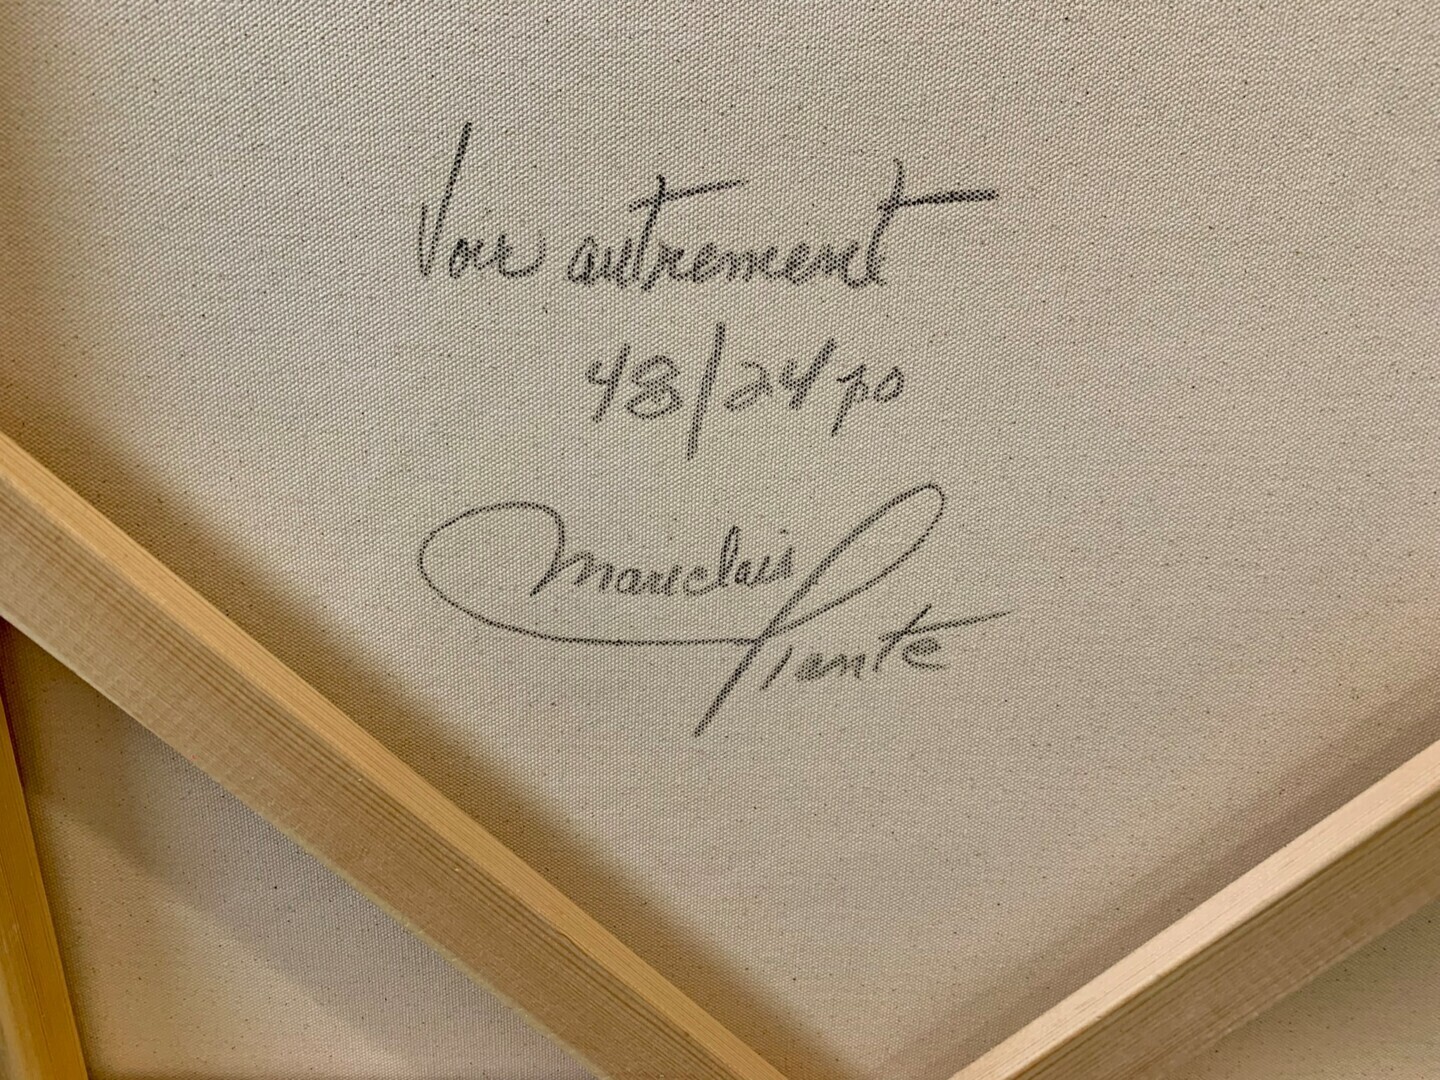 Voir autrement
48/24 po
Marieclair
Plante